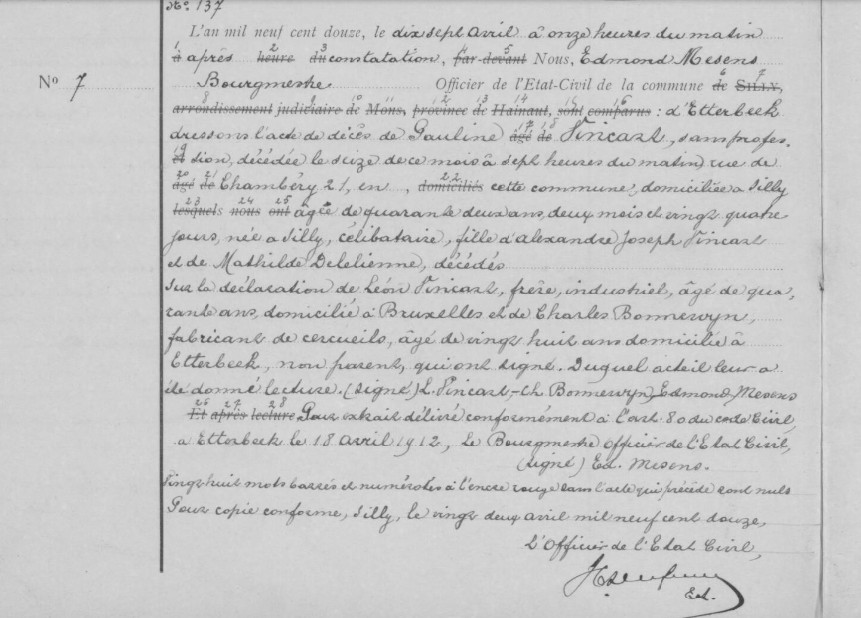 No. 137
L'an mil neuf cent douze, le dix sept avril à onze heures du matin
à après heure du constatation, par-devant Nous, Edmond Mesens
No 7
Bourgmestre Officier de l'Etat-Civil de la commune de SILLY,
arrondissement judiciaire de Mons, province de Hainaut, sont comparus : d'Etterbeek
dressons l'acte de décès de Pauline âgé de Vincart, sans profes-
et sion, décédée le seize de ce mois à sept heures du matin, rue de
âgé de Chambéry 21, en , domiciliés cette commune, domiciliée à Silly
lesquels nous ont âgée de quarante deux ans, deux mois et vingt quatre
jours, née à Silly, célibataire, fille d'Alexandre Joseph Vincart
et de Mathilde Delelienne, décédés
Sur la déclaration de Léon Vincart, frère, industriel, âgé de qua,
rante ans, domicilié à Bruxelles et de Charles Bonnewyn,
fabricant de cercueils, âgé de vingt huit ans domicilié à
Etterbeek, non parent, qui ont signé. Duquel acte il leur a
été donné lecture. (signé) L. Vincart, - Ch Bonnewyn, Edmond Mesens
Et après lecture Pour extrait délivré conformément à l'art 80 du code Civil,
à Etterbeek le 18 avril 1912, Le Bourgmestre Officier de l'Etat Civil,
(signé) Ed. Mesens.
Vingt huit mots barrés et numérotés à l'encre rouge dans l'acte qui précède sont nuls
Pour copie conforme, Silly, le vingt deux avril mil neuf cent douze,
L'Officier de l'Etat Civil,
Ech.